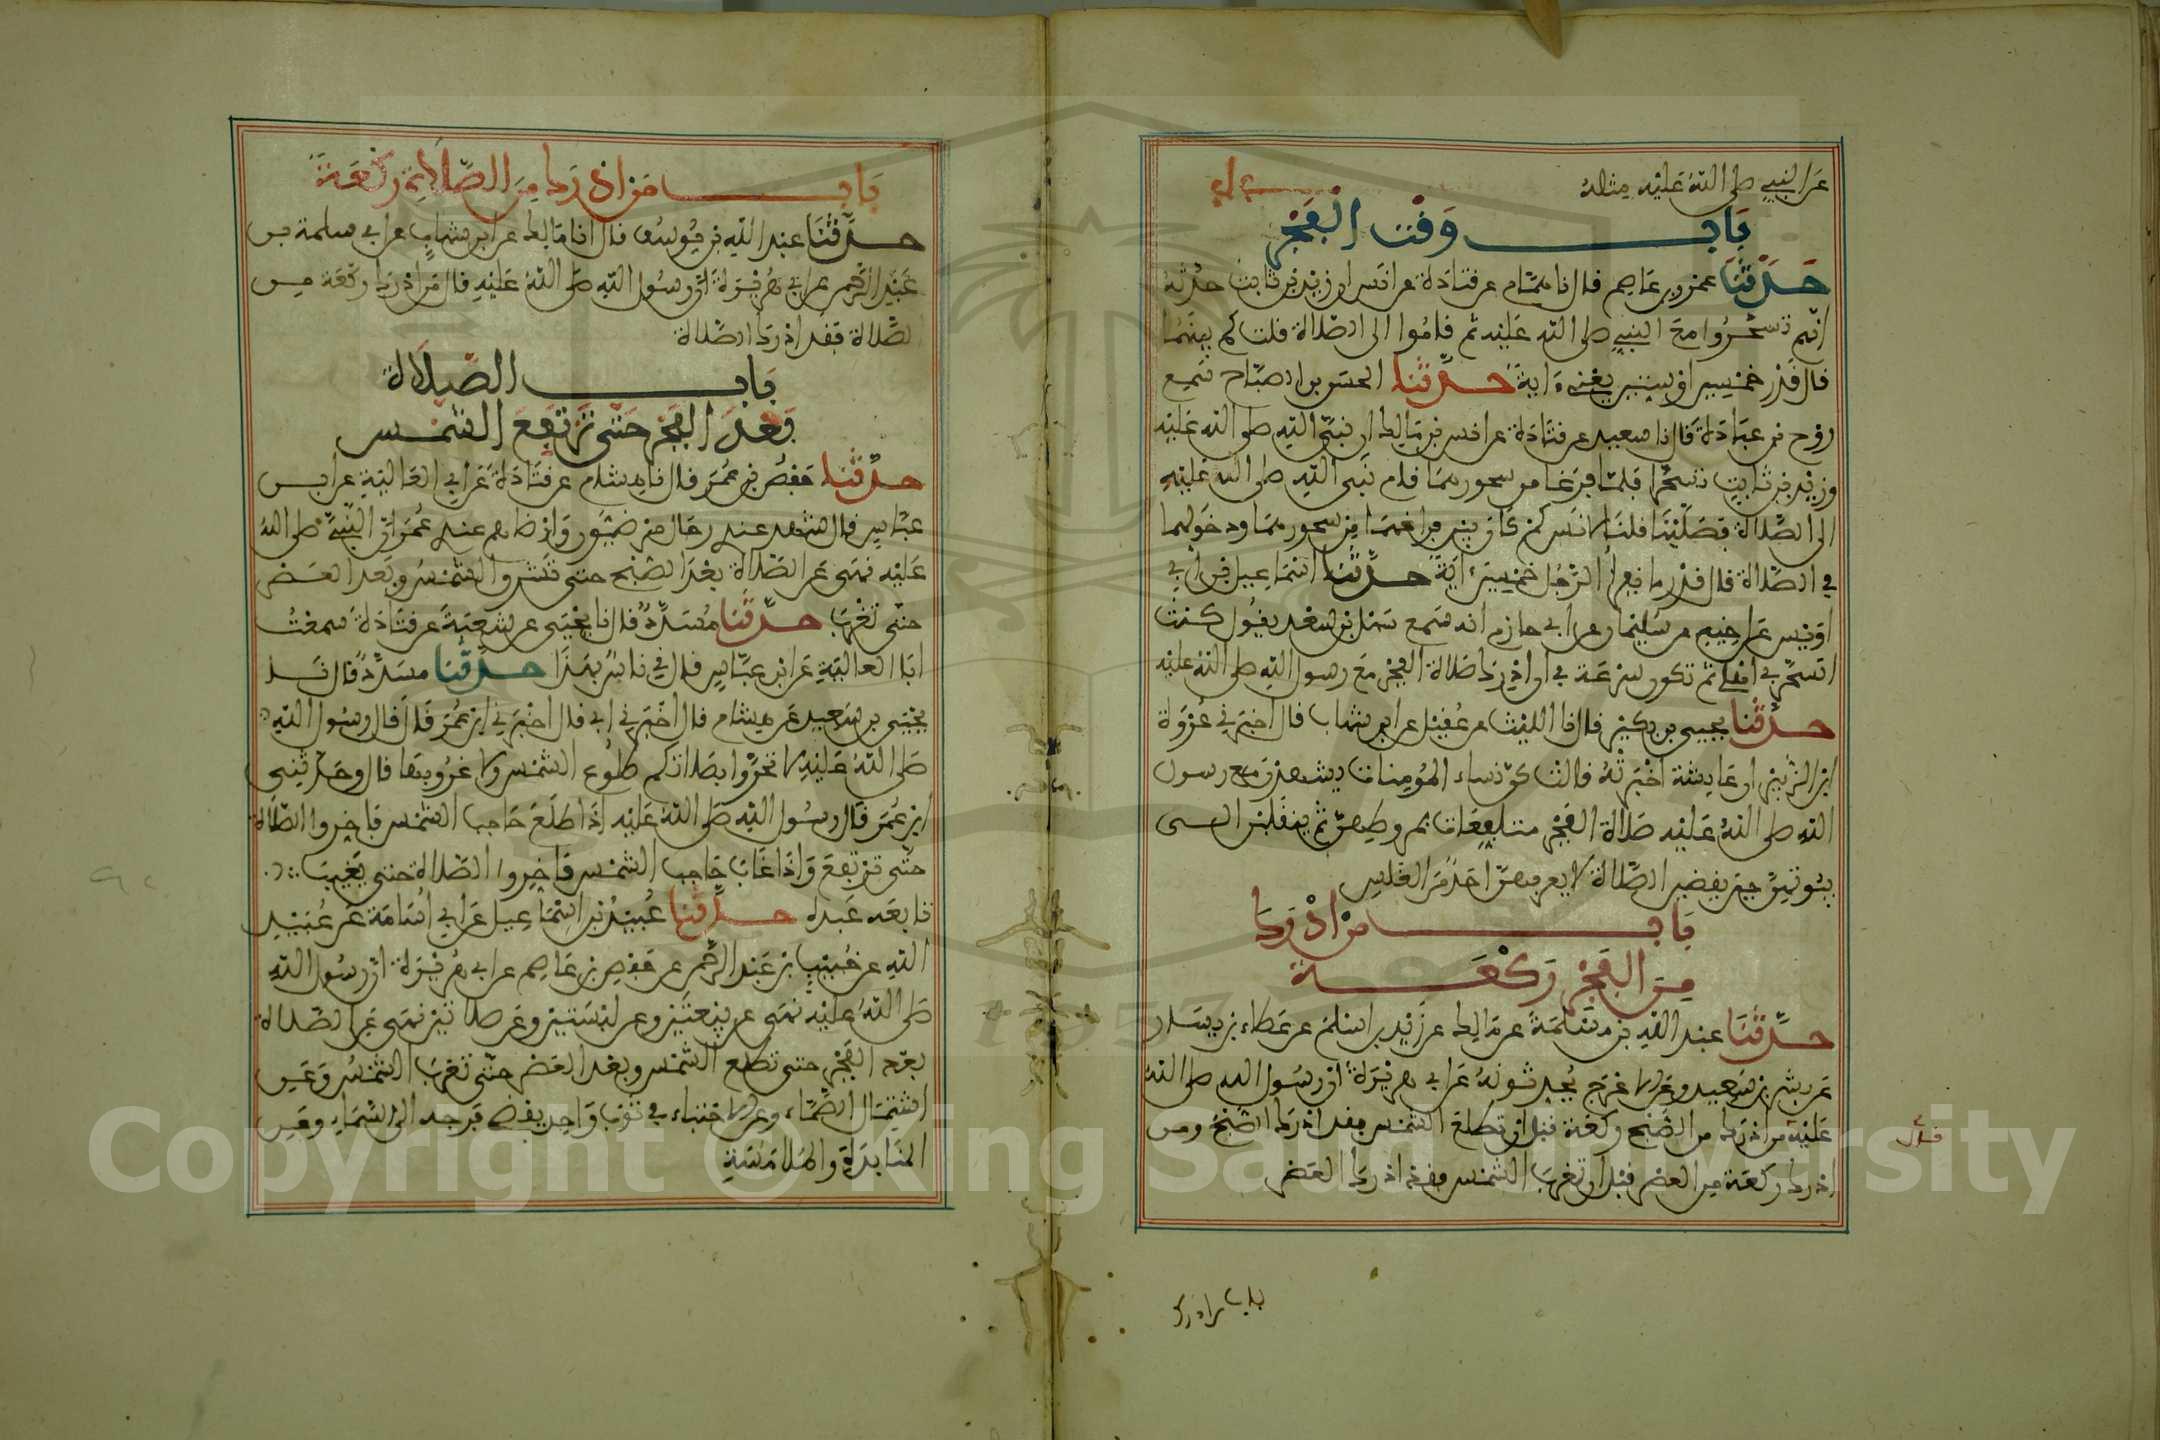 عن النبي صلى الله عليه مثله
باب وقت الفجر
حدثنا عمرو بن عاصم قال نا همام عن قتادة عن انس ان زيد بن ثابت حدثه
انهم تسحروا مع النبي صلى الله عليه ثم قاموا الى الصلاة قلت كم بينهما
قال قدر خمسين او ستين يعني ءاية حدثنا الحسن بن الصباح سمع
روح بن عبادة قال نا سعيد عن قتادة عن انس بن مالك ان نبي الله صلى الله عليه
وزيد بن ثابت تسحرا فلما فرغا من سحورهما قام نبي الله صلى الله عليه
الى الصلاة فصلينا قلنا لانس كم كان بين فراغهما من سحورهما ودخولهما
في الصلاة قال قدر ما يقرأ الرجل خمسين ءاية حدثنا اسماعيل بن ابي
اويس عن اخيه عن سليمان عن ابي حازم انه سمع سهل بن سعد يقول كنت
اتسحر في اهلي ثم تكون سرعة بي ان ادرك صلاة الفجر مع رسول الله صلى الله عليه
حدثنا يحيى بن بكير قال نا الليث عن عقيل عن ابن شهاب قال اخبرني عروة
ابن الزبير ان عايشة اخبرته قالت كن نساء المومنات يشهدن مع رسول
الله صلى الله عليه صلاة الفجر متلفعات بمروطهن ثم ينقلبن الى
بيوتهن حين يقضين الصلاة لا يعرفهن احد من الغلس
باب من ادرك
من الفجر ركعة
حدثنا عبد الله بن مسلمة عن مالك عن زيد بن اسلم عن عطاء بن يسار
عن بسر بن سعيد وعن الاعرج يحدثونه عن ابي هريرة ان رسول الله صلى الله
عليه من ادرك من الصبح ركعة قبل ان تطلع الشمس فقد ادرك الصبح ومن
قال
ادرك ركعة من العصر قبل ان تغرب الشمس فقد ادرك العصر
باب من ادرك
باب من ادرك من الصلاة ركعة
حدثنا عبد الله بن يوسف قال انا مالك عن ابن شهاب عن ابي سلمة بن
عبد الرحمن عن ابي هريرة ان رسول الله صلى الله عليه قال من ادرك ركعة من
الصلاة فقد ادرك الصلاة
باب الصلاة
بعد الفجر حتى ترتفع الشمس
حدثنا حفص بن عمر قال نا هشام عن قتادة عن ابي العالية عن ابن
عباس قال شهد عندي رجال مرضيون وارضاهم عندي عمر ان النبي صلى الله
عليه نهى عن الصلاة بعد الصبح حتى تشرق الشمس وبعد العصر
حتى تغرب حدثنا مسدد قال نا يحيى عن شعبة عن قتادة سمعت
ابا العالية عن ابن عباس قال حدثني ناس بهذا حدثنا مسدد قال نا
يحيى بن سعيد عن هشام قال اخبرني ابي قال اخبرني ابن عمر قال قال رسول الله
صلى الله عليه لا تحروا بصلاتكم طلوع الشمس ولا غروبها قال وحدثني
ابن عمر قال رسول الله صلى الله عليه اذا طلع حاجب الشمس فاخروا الصلاة
حتى ترتفع واذا غاب حاجب الشمس فاخروا الصلاة حتى تغيب
تابعه عبدة حدثنا عبيد بن اسماعيل عن ابي اسامة عن عبيد
الله عن خبيب بن عبد الرحمن عن حفص بن عاصم عن ابي هريرة ان رسول الله
صلى الله عليه نهى عن بيعتين وعن لبستين وعن صلاتين نهى عن الصلاة
بعد الفجر حتى تطلع الشمس وبعد العصر حتى تغرب الشمس وعن
اشتمال الصماء وعن الاحتباء في ثوب واحد يفضي بفرجه الى السماء وعن
المنابذة والملامسة
Copyright © King Saud University
1957